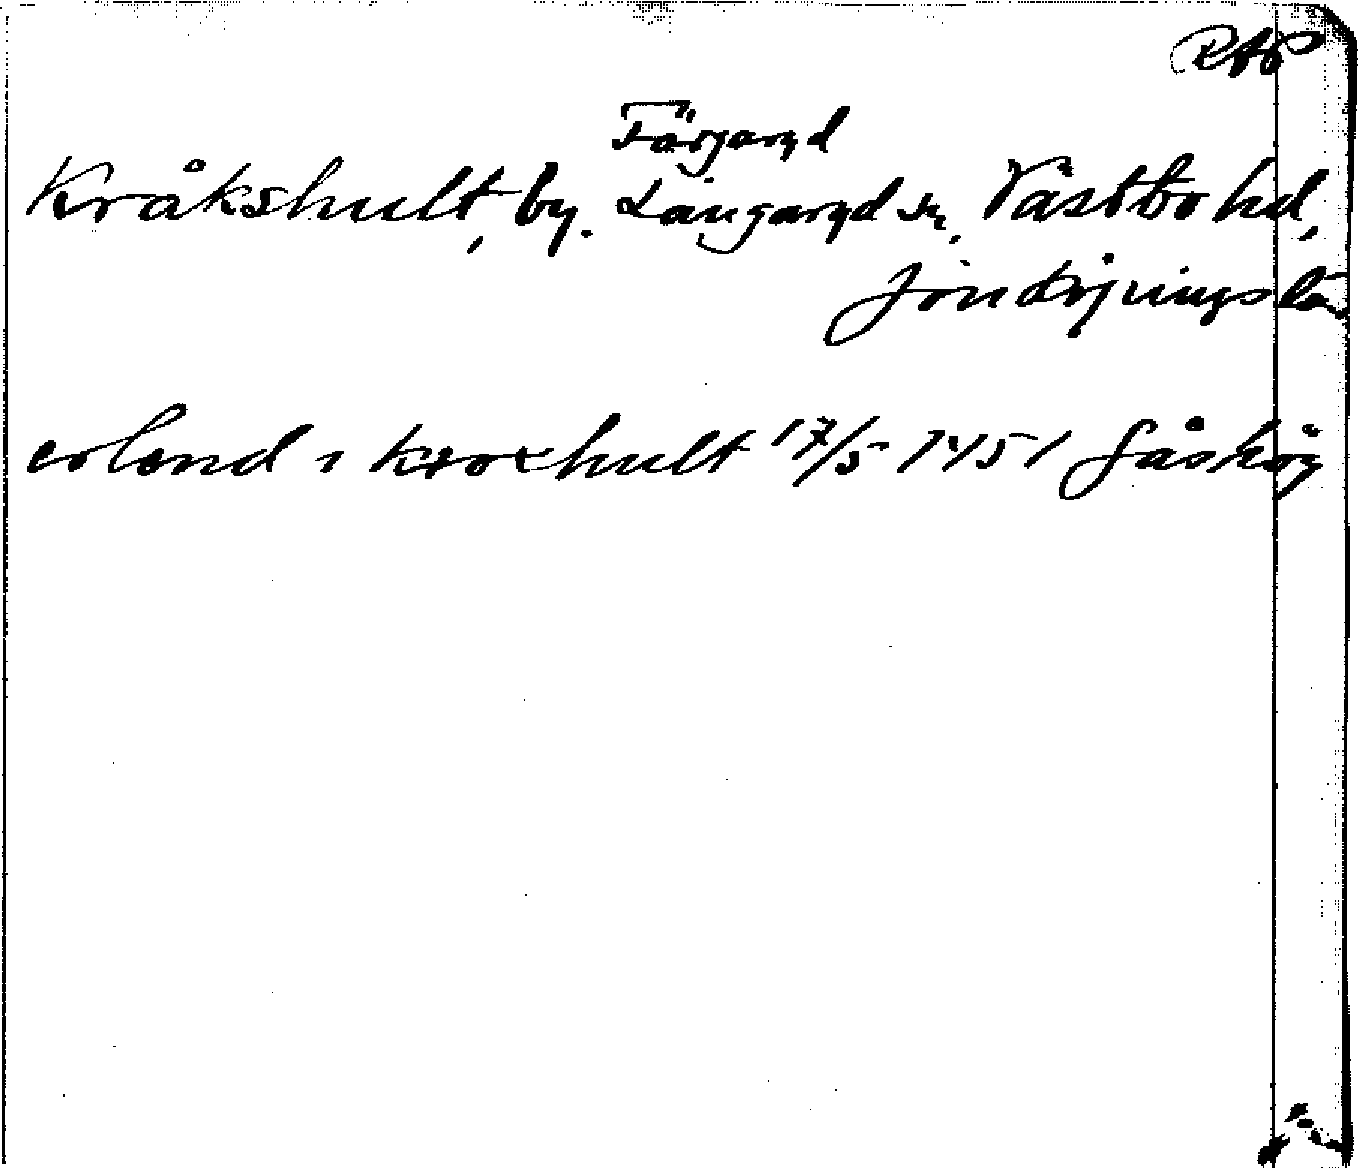 RAP
Färgaryd
Kråkshult, by. Långaryd sn, Västbo hd,
Jönköpings län
erlend i kroxhult 17/5 1451 Gåshög